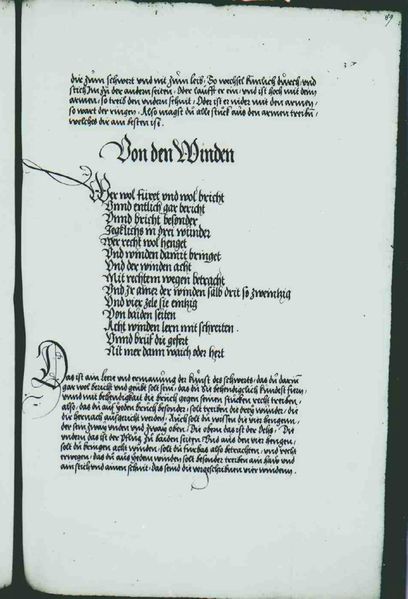 89
die zum schwert und nit zum leib / So wechsel künlich durch / und
stich Im zu der andern seiten / Oder laufft er ein / und ist hoch mit dem
armen / so treib den undern schnit / Oder ist er nider mit den armen /
so wart der ringen / Also magst du alle stuck aus den armen treiben /
welches dir am besten ist
Von den Winden
Wer wol füret und wol bricht
Unnd entlich gar bericht
Unnd bricht besonder
Jegklichs in drei wunder
Wer recht wol henget
Und winden damit bringet
Und der winden acht
Mit rechtem wegen betracht
Und Ir ainer der winden salb drit so zwentzig
Und vier zele sie eintzig
Von baiden seiten
Acht winden lern mit schreiten
Unnd brüf die gefert
Nit mer dann waich oder hert
Das ist am lere und ermanung der kunst des schwerts / das du darin
gar wol bericht und geübt solt sein / das du Sie behendigclich kündest
und mit behendigkait die brüch gegen seinen stucken recht treiben /
also / das du auf yeden bruch besonder / solt treiben die drey wunder / die
die hernach ausgericht werden / Auch solt du wissen die vier hengenn /
der sein zway unden und zway oben / Die obern das ist der Ochs / Die
undern das ist der Pflug zu baiden seiten Und aus den vier hengen /
solt du bringen acht winden / solt du fürbas also betrachten / und recht
erwegen / das du aus yedem winden solt besonder treiben ain haw und
ain stich und ainen schnit / das send die vorgeschriben vier winden